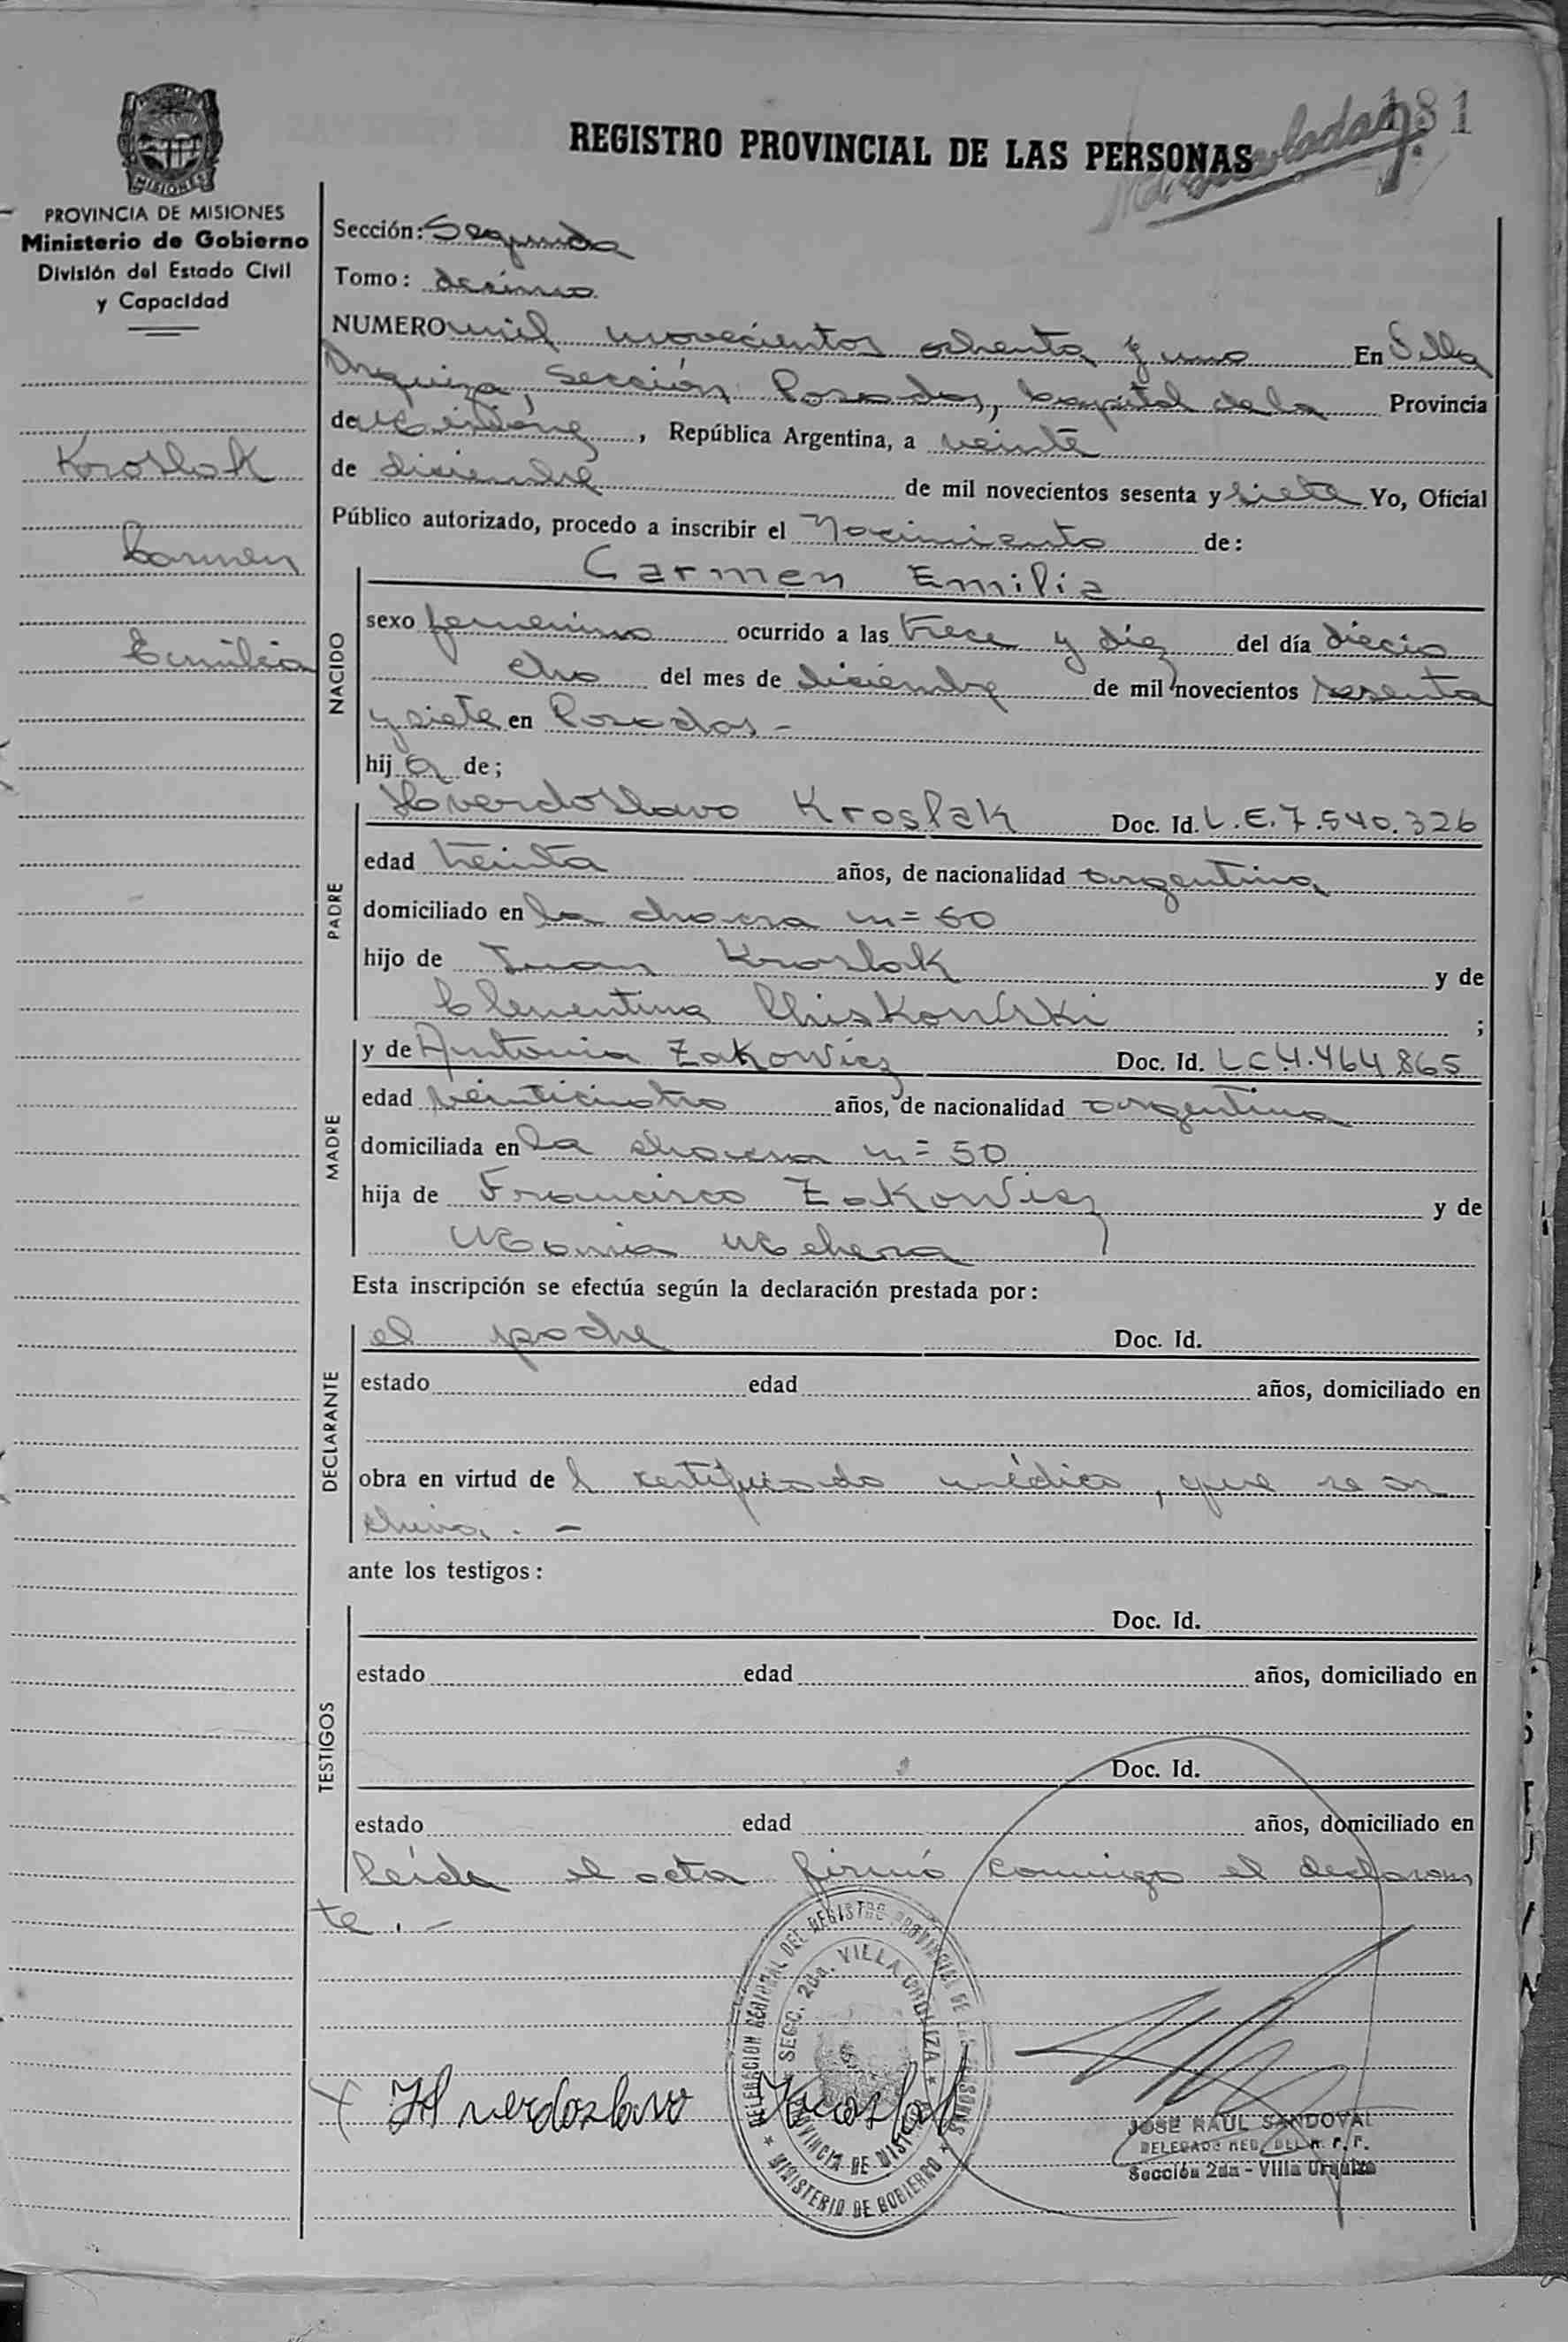 181
REGISTRO PROVINCIAL DE LAS PERSONAS
MISIONES
PROVINCIA DE MISIONES
Ministerio de Gobierno
División del Estado Civil
y Capacidad
Kroslak
Carmen
Emilia
Sección: Segunda
Tomo: decimo
NUMERO mil novecientos ochenta y uno En Villa
Urquiza, Sección Posadas, Capital de la Provincia
de Misiones, República Argentina, a veinte
de diciembre de mil novecientos sesenta y siete Yo, Oficial
Público autorizado, procedo a inscribir el Nacimiento de:
NACIDO
Carmen Emilia
sexo femenino ocurrido a las trece y diez del día diecio
cho del mes de diciembre de mil novecientos sesenta
y siete en Posadas -
hij a de;
PADRE
Hverdoslavo Kroslak Doc. Id. L.E. 7.540.326
edad treinta años, de nacionalidad argentina
domiciliado en la chacra n= 50
hijo de Juan Kroslak y de
Clementina ;
MADRE
y de Antonia Zakowicz Doc. Id. LC 4.464.865
edad veinticuatro años, de nacionalidad argentina
domiciliada en la chacra n= 50
hija de Francisco Zakowicz y de
Maria
Esta inscripción se efectúa según la declaración prestada por:
DECLARANTE
el padre Doc. Id.
estado edad años, domiciliado en
obra en virtud de l certificado médico, que se ar
chiva. -
ante los testigos:
TESTIGOS
Doc. Id.
estado edad años, domiciliado en
Doc. Id.
estado edad años, domiciliado en
Leída el acta firmó conmigo el declaran
te. -
DELEGACION REGIONAL DEL REGISTRO PROVINCIAL DE LAS PERSONAS
SECC. 2da. VILLA URQUIZA
PROVINCIA DE MISIONES
MINISTERIO DE GOBIERNO
X Hverdoslavo Kroslak
JOSE RAUL SANDOVAL
DELEGADO REG. DEL R. P. P.
Sección 2da - Villa Urquiza